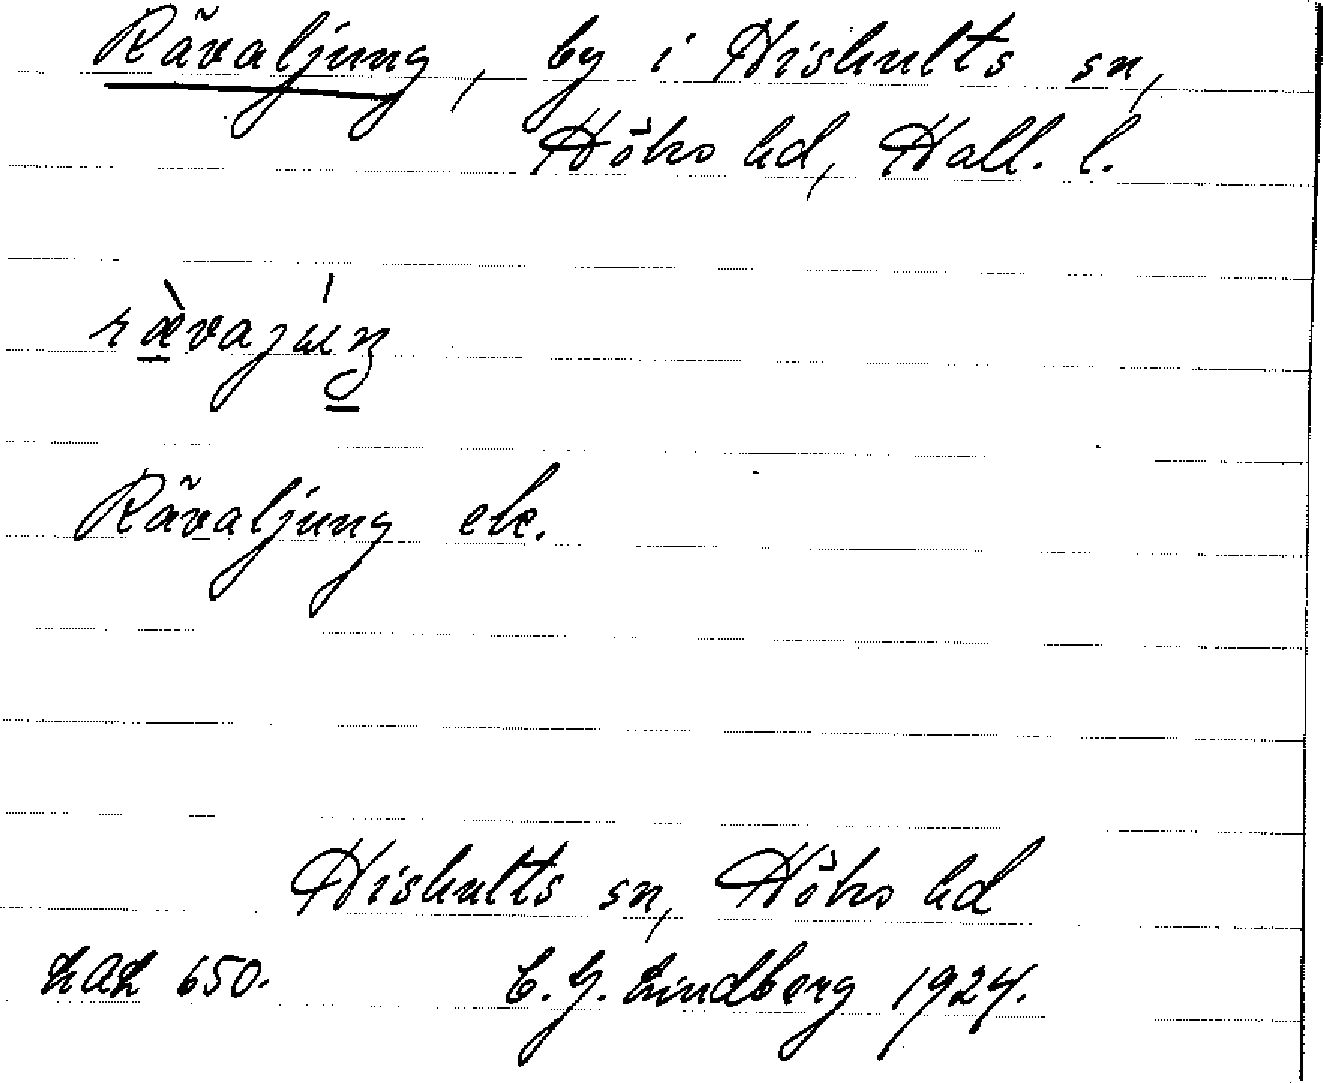 Rävaljung, by i Hishults sn,
Höks hd, Hall. l.
Rävaljung ek.
Hishults sn, Höks hd
LAL 650. C. G. Lindberg 1924.